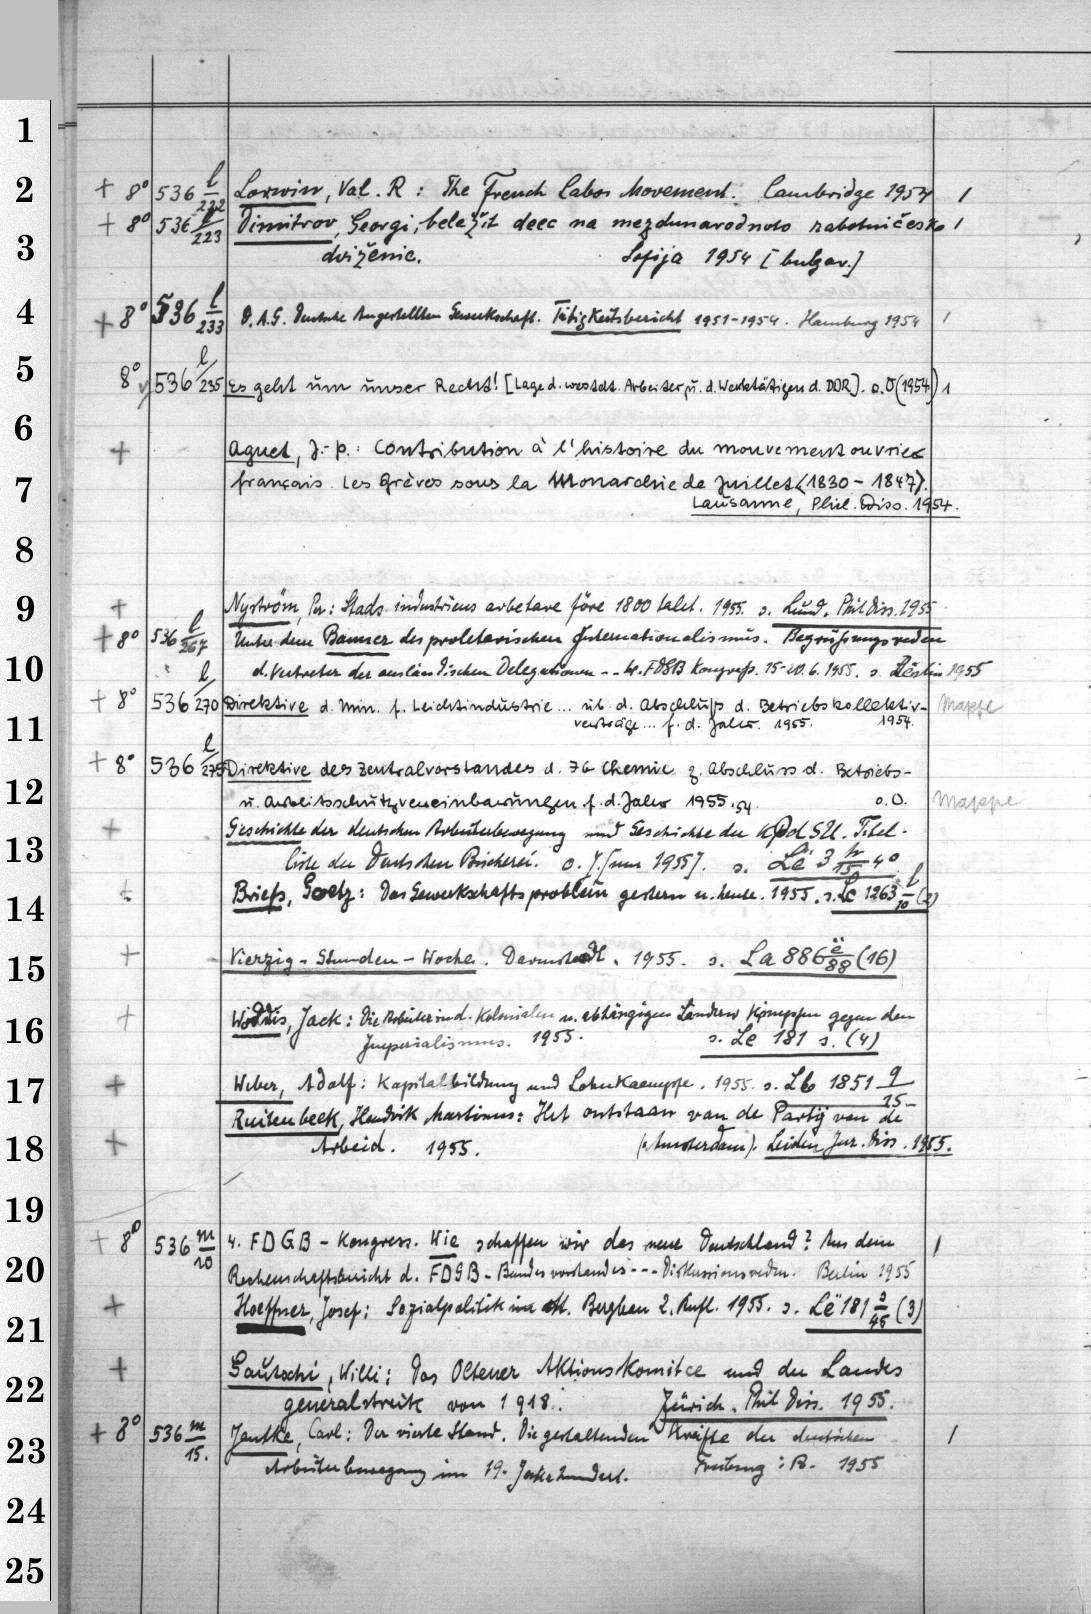 1
2
+ 8° 536 l/232 Lorwin, Val. R: The French Labor Movement. Cambridge 1954 1
+ 8° 536 l/223 Dimitrov, Georgi; beležit deec na meždunarodnoto rabotničesko 1
3
dviženie. Sofija 1954 [bulgar.]
4
+ 8° 536 l/233 D.A.G. Deutsche Angestellten Gewerkschaft. Tätigkeitsbericht 1951-1954. Hamburg 1954 1
5
8° 536 l/235 Es geht um unser Recht! [Lage d. westdt. Arbeiter u. d. Werktätigen d. DDR]. o.O (1954) 1
6
+ Aguet, J.-P.: Contribution à l'histoire du mouvement ouvrier
7
français. Les Grèves sous la Monarchie de Juillet (1830-1847).
Lausanne, Phil. Diss. 1954.
8
9
+ Nyström, Per: Stads industriens arbetare före 1800 talet. 1955. s. Lund, Phil Diss. 1955
+ 8° 536 l/267 Unter dem Banner des proletarischen Internationalismus. Begrüssungsreden
10
d. Vertreter der ausländischen Delegationen -- 4. FDGB Kongreß. 15-20.6.1955. s. Berlin 1955
+ 8° 536 l/270 Direktive d. Min. f. Leichtindustrie ... üb. d. Abschluß d. Betriebskollektiv- Mappe
11
verträge ... f. d. Jahr. 1955. 1954.
+ 8° 536 l/275 Direktive des Zentralvorstandes d. JG Chemie z. Abschluss d. Betriebs-
12
u. Arbeitsschutzvereinbarungen f. d. Jahr 1955. 54. o.O. Mappe
+ Geschichte der deutschen Arbeiterbewegung und Geschichte der KPdSU. Titel-
13
liste der Deutschen Bücherei. o. J. [um 1955]. s. Le 3 h/15 40
+ Briefs, Goetz: Das Gewerkschaftsproblem gestern u. heute. 1955. s. Le 1263 l/10 (2)
14
+ Vierzig-Stunden-Woche. Darmstadt. 1955. s. La 886 ë/88 (16)
15
+ Woddis, Jack: Die Arbeiter in d. Kolonialen u. abhängigen Ländern kämpfen gegen den
16
Imperialismus. 1955. s. Le 181 s. (4)
17
+ Weber, Adolf: Kapitalbildung und Lohnkaempfe. 1955. s. Lb 1851 q/15-
Ruitenbeek, Hendrik Martinus: Het ontstaan van de Partij van de
18
+ Arbeid. 1955. (Amsterdam). Leiden, Jur. Diss. 1955.
19
+ 8° 536 m/10 4. FDGB-Kongress. Wie schaffen wir das neue Deutschland? Aus dem 1
20
Rechenschaftsbericht d. FDGB-Bundesvorstandes --- Diskussionsreden. Berlin 1955
+ Hoeffner, Josef: Sozialpolitik im dt. Bergbau 2. Aufl. 1955. s. Lë 181 s/45 (3)
21
+ Gautschi, Willi: Das Oltener Aktionskomitee und der Landes
22
generalstreik von 1918. Zürich, Phil Diss. 1955.
+ 8° 536 m/15. Jantke, Carl: Der vierte Stand. Die gestaltenden Kräfte der deutschen 1
23
Arbeiterbewegung im 19. Jahrhundert. Freiburg i. B. 1955
24
25